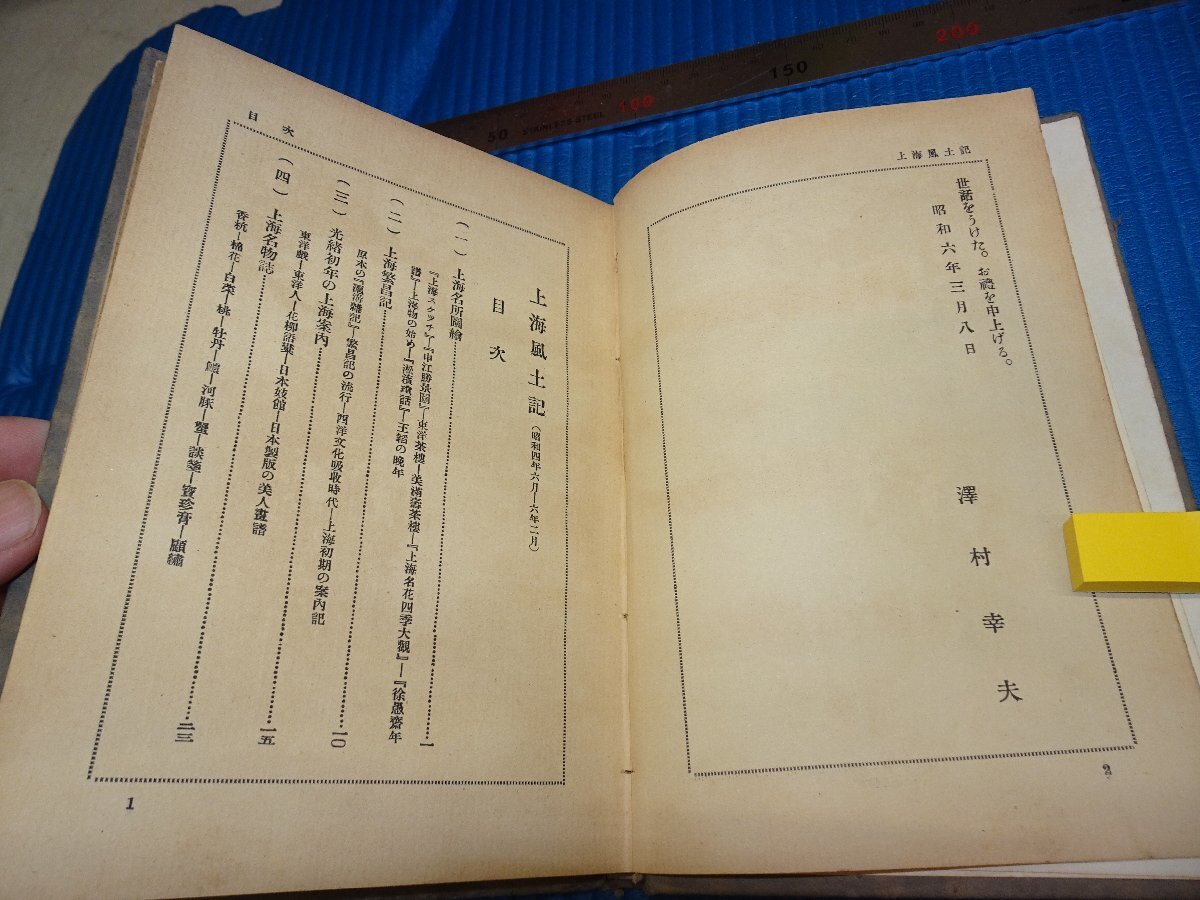 上海風土記
世話をうけた。お禮を申上げる。
昭和六年三月八日
澤村幸夫
2
目次
上海風土記(昭和四年六月—六年二月)
目次
(一)上海名所圖繪……一
『上海スケッチ』—『申江勝景圖』—東洋茶樓—美滿壽茶樓—『上海名花四季大觀』—『徐愚齋年
譜』—上海物の始め—『淞濱瑣話』—王韜の晩年
(二)上海繁昌記……一〇
原本の『滬游雜記』—繁昌記の流行—西洋文化吸收時代—上海初期の案內記
(三)光緖初年の上海案內……一五
東洋戲—東洋人—花柳語彙—日本妓館—日本製版の美人畫譜
(四)上海名物誌……二三
香杭—棉花—白菜—桃—牡丹—鱸—河豚—蟹—談箋—寶珍膏—顧繡
1
50
STAINLESS STEEL
100
150
200